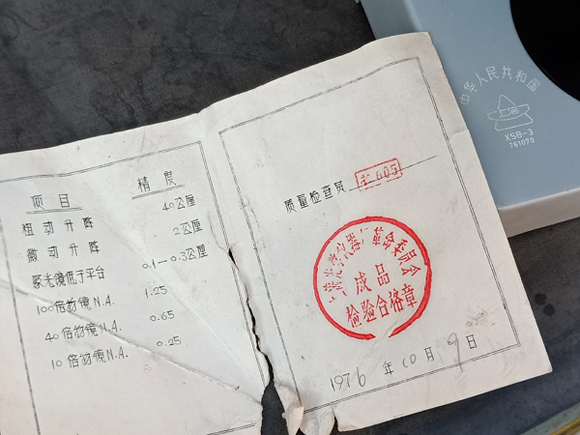 项目 精度
粗动升降 40公厘
微动升降 2公厘
聚光镜低于平台 0.1—0.3公厘
100倍物镜N.A. 1.25
40倍物镜N.A. 0.65
10倍物镜N.A. 0.25
质量检查员 605
上海光学仪器厂革命委员会
成品
检验合格章
1976年10月9日
中华人民共和国
上海
XSB-3
761070